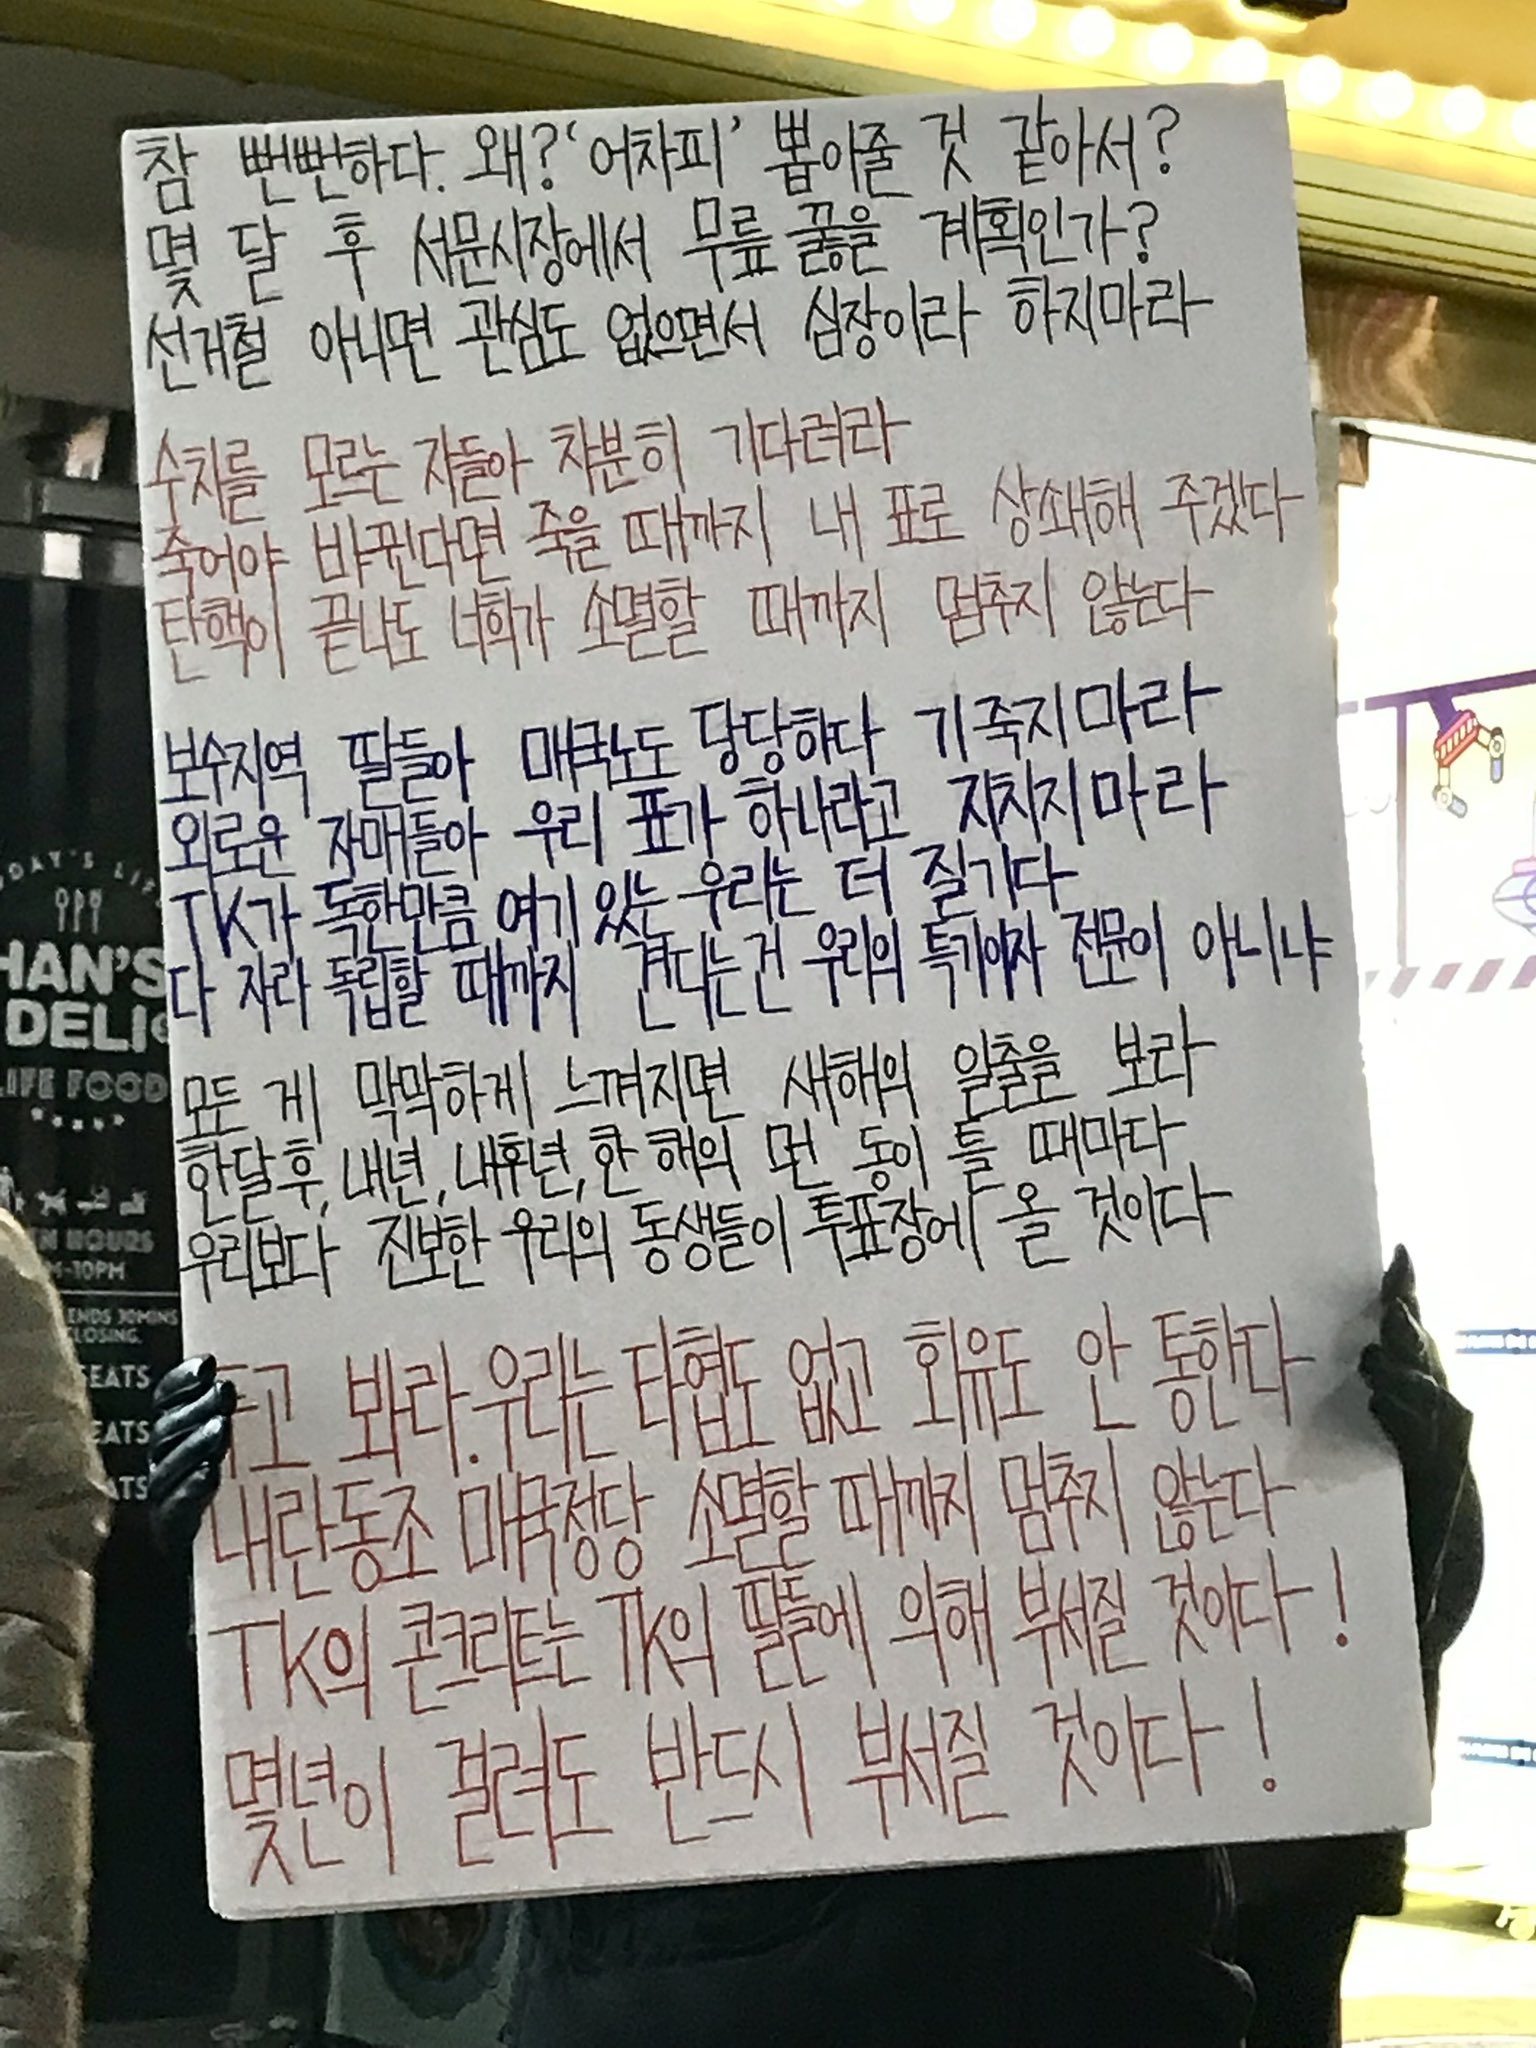 참 뻔뻔하다. 왜? '어차피' 뽑아줄 것 같아서?
몇 달 후 서문시장에서 무릎 꿇을 계획인가?
선거철 아니면 관심도 없으면서 심장이라 하지마라
수치를 모르는 자들아 차분히 기다려라
죽어야 바뀐다면 죽을 때까지 내 표로 상쇄해 주겠다
탄핵이 끝나도 너희가 소멸할 때까지 멈추지 않는다
보수지역 딸들아 매국노도 당당하다 기죽지마라
외로운 자매들아 우리 표가 하나라고 지치지마라
TK가 독한만큼 여기 있는 우리는 더 질기다
다 자라 독립할 때까지 견디는건 우리의 특기이자 전문이 아니냐
모든 게 막막하게 느껴지면 새해의 일출을 보라
한달후, 내년, 내후년, 한 해의 먼 동이 틀 때마다
우리보다 진보한 우리의 동생들이 투표장에 올 것이다
고 봐라. 우리는 타협도 없고 회유도 안 통한다
내란동조 매국정당 소멸할 때까지 멈추지 않는다
TK의 콘크리트는 TK의 딸들에 의해 부서질 것이다!
몇년이 걸려도 반드시 부서질 것이다!
HAN'S
DELI
LIFE FOOD
HOURS
-10PM
ENDS 30MINS
CLOSING.
EATS
EATS